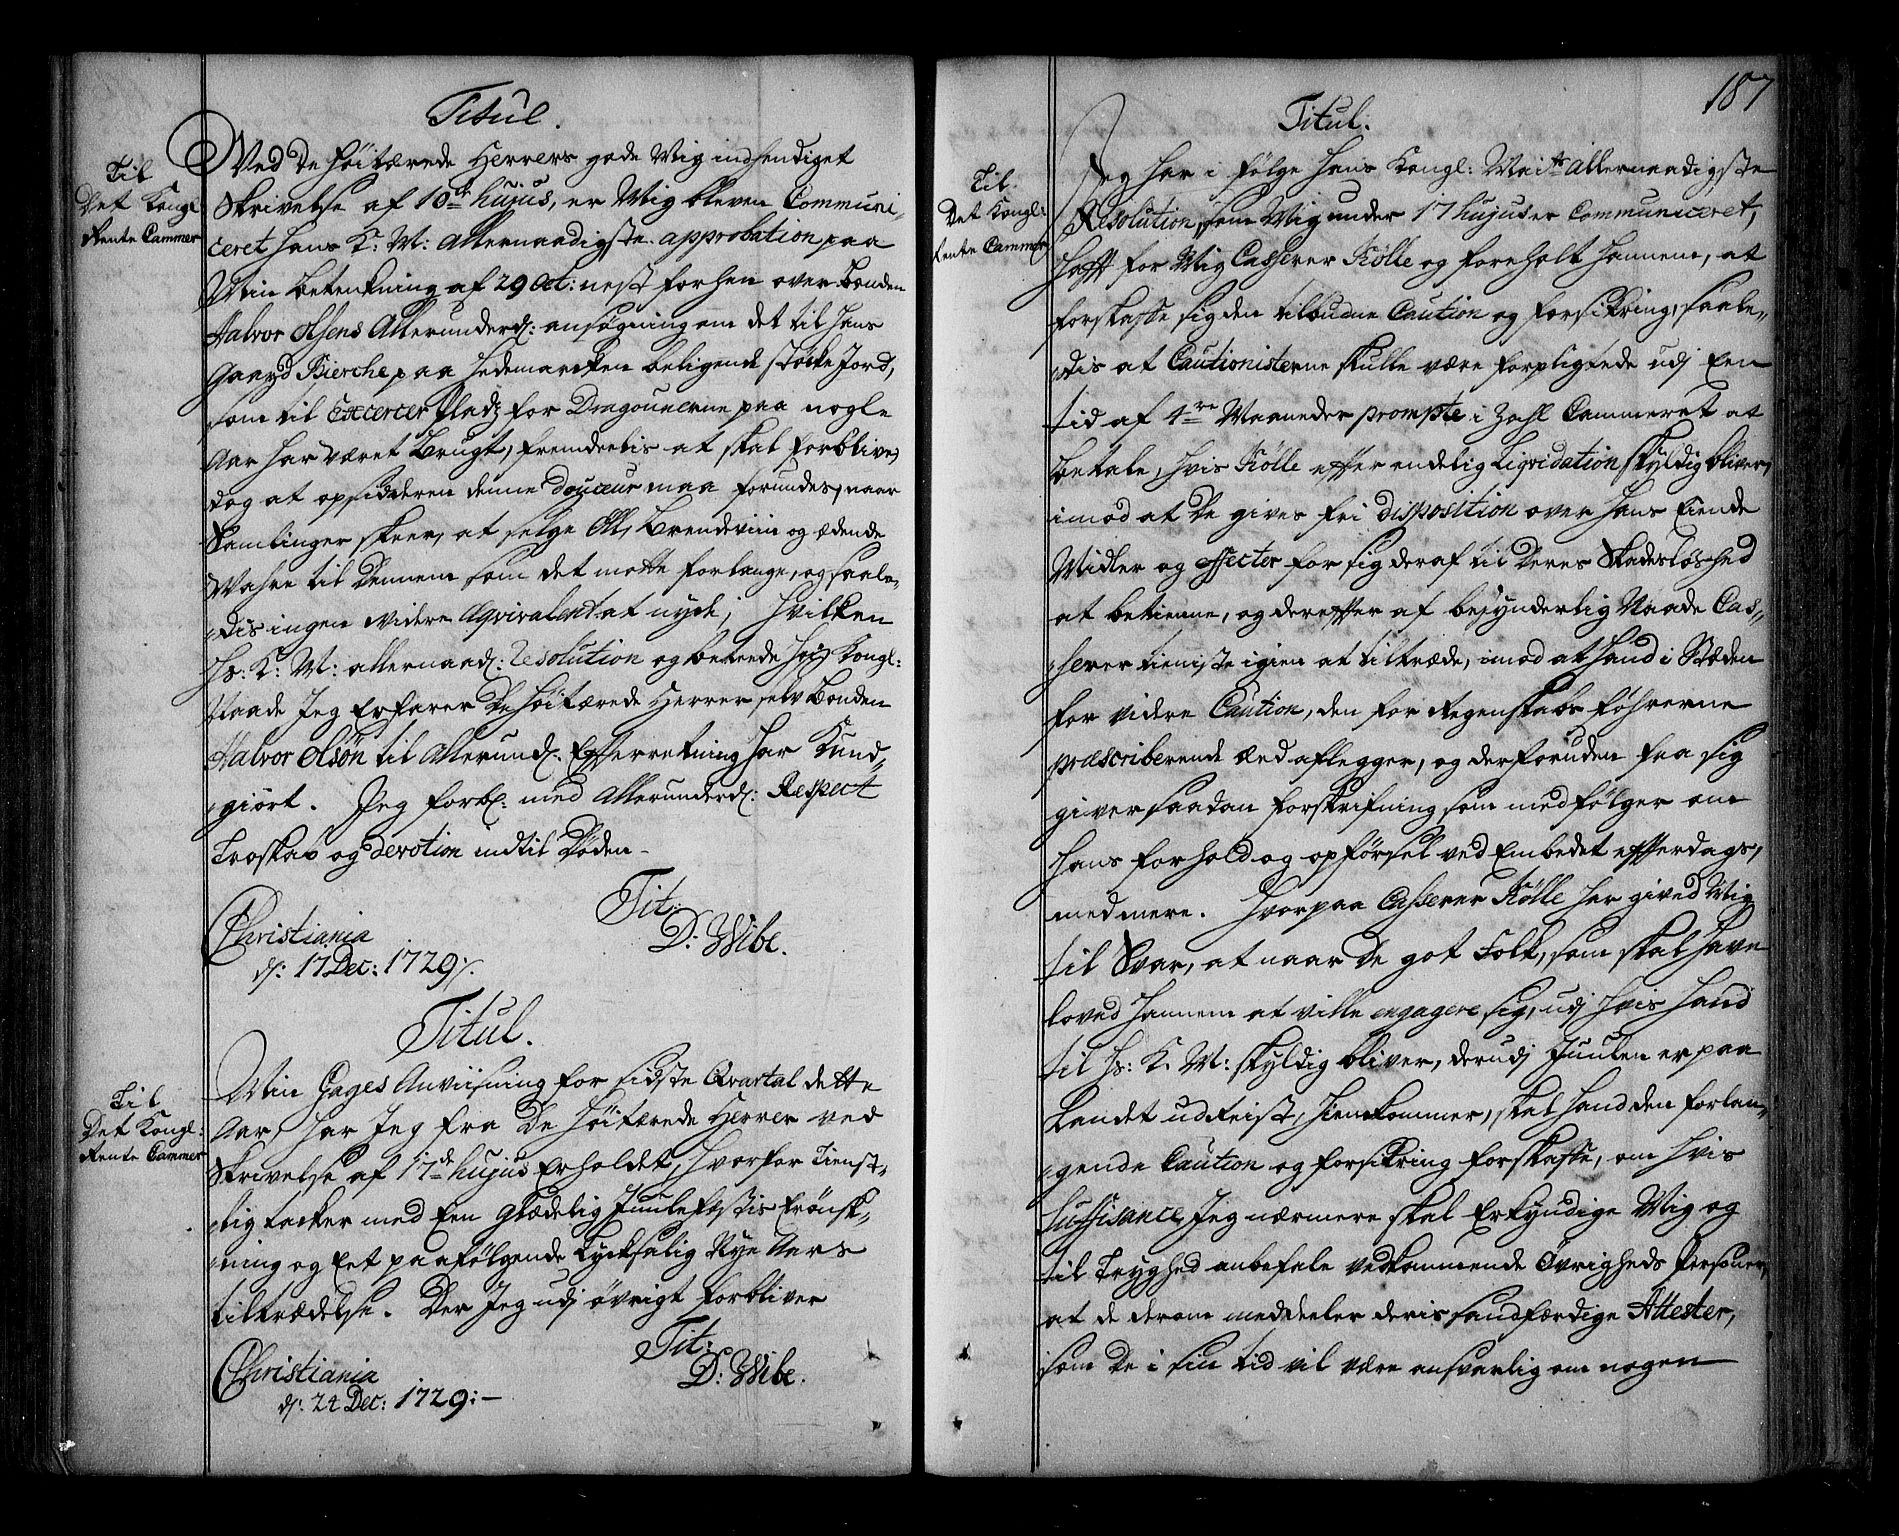 Titul.
Til
Det Kongl:
Rente Cammer
Ved De Høitærede Herrers gode Mig indhendiget
Skrivelse af 10de hujus, er Mig bleven Communi-
ceret Hans K: M: Allernaadigste approbation paa
Min betenkning af 29 Oct: nest forhen over bonden
Halvor Olsens Allerunderd: ansøgning om det til hans
Gaard Bierche paa Hedemarcken beligende støcke Jord,
som til Excercer Pladz for Dragounerne paa nogle
Aar har været brugt, fremdeelis at skal forblive,
dog at opsidderen denne douceur maa forundes, naar
Samlinger skeer, at selge Øll, Brendeviin og ædende
Wahre til dennem som det motte forlange, og saale-
dis ingen videre Æqvivalent at nyde; Hvilken
Hs: K: M: allernaad: Resolution og beteede høje Kongl:
Naade Jeg Erfarer De Høitærede Herrer selv bonden
Halvor Olsøn til Allerund: Efterretning har Kund-
giort. Jeg forbl: med Allerunderd: Respect
Troskab og devotion indtil Døden
Tit:
D: Wibe.
Christiania
d: 17 Dec: 1729.
Titul.
Til
Det Kongl:
Rente Cammer
Min Gages Anviisning for sidste Qvartal dette
Aar, har Jeg fra De Høitærede Herrer ved
Skrivelse af 17de hujus Erholdet, hvorfor Tienst-
lig tacker med Een Glædelig Juulefestis Erønsk-
ning og Eet paafølgende Lycksalig Nye Aars
tiltrædelse. Der Jeg udj øvrigt forbliver
Tit:
D: Wibe.
Christiania
d: 24 Dec: 1729:-
187
Titul.
Til
Det Kongl:
Rente Cammer
Jeg har i følge Hans Kongl: Maits allernaadigste
Resolution, som Mig under 17 hujus er Communiceret,
hafft for Mig Casserer Kølle og foreholt hannem, at
forskaffe sig den tilbudne Caution og forsikring, saale-
dis at Cautionisterne skulle være forpligtede udj Een
tid af 4re Maaneder prompte i Zahl Cammeret at
betale, hvis Kølle efter endelig Liqvidation skyldig bliver,
imod at De gives fri disposition over hans Eiende
Midler og effecter for sig deraf til deres Skadesløshed
at betienne, og derefter af besynderlig Naade Cas-
serer tieniste igien at tiltræde, imod at hand i Stæden
for videre Caution, den for Regenskabs førerne
præscriberende æed aflegger, og derforuden fra sig
giver saadan forskrifning, som medfølger om
hans forhold og opførsel ved Embedet efterdags,
med mere. Hvorpaa Casserer Kølle har gived Mig
til Svar, at naar De got Folk, som skal have
loved hannem at ville engagere sig, udj hvis hand
til Hs: K: M: skyldig bliver, derudj Juulen er paa
Landet udreist, hiemkommer, skal hand den forlan-
gende Caution og forsikring forskaffe, om hvis
Suffisance Jeg nærmere skal Erkyndige Mig og
til Tryghed anbefale vedkommende Øvrigheds Persohner,
at de derom meddeeler deris sandfærdige Attester,
som De i sin tid vil være ansvarlig om nogen